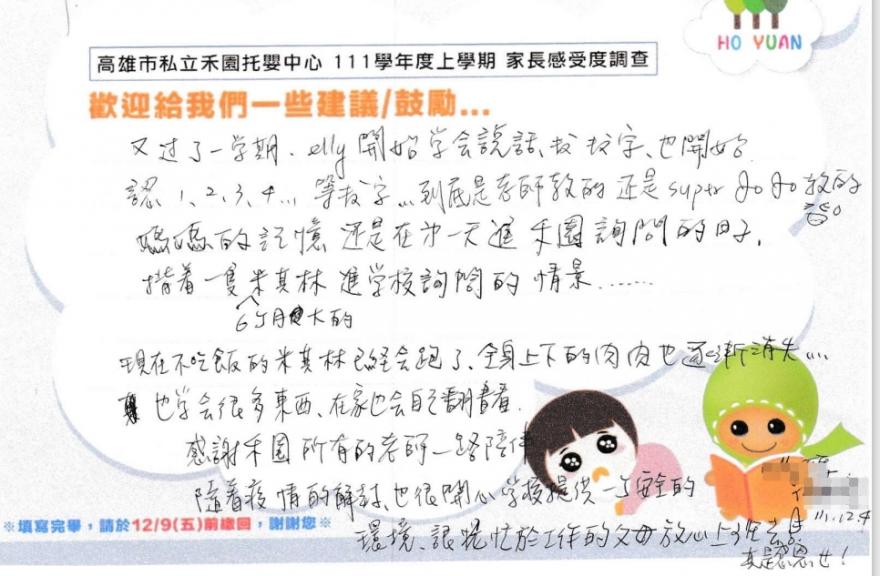 HO YUAN
高雄市私立禾園托嬰中心 111學年度上學期 家長感受度調查
歡迎給我們一些建議/鼓勵...
又过了一学期、elly 開始学会說話、也開始
認 1、2、3、4... 等...到底是老師教的 还是 super JoJo 教的
媽媽的記憶 還是在第一天進禾園詢問的日子,
揹着一隻米其林 進学校詢問的 情景......
6个月大的
現在不吃飯的米其林已经会跑了、全身上下的肉肉也逐漸消失....
也学会很多東西、在家也会自己翻書看.
感謝禾園 所有的老師一路陪伴
隨着疫情的解封、也很開心学校提供一个安全的
環境、讓忙於工作的父母放心上
111.12.4
※填寫完畢,請於12/9(五)前繳回,謝謝您※